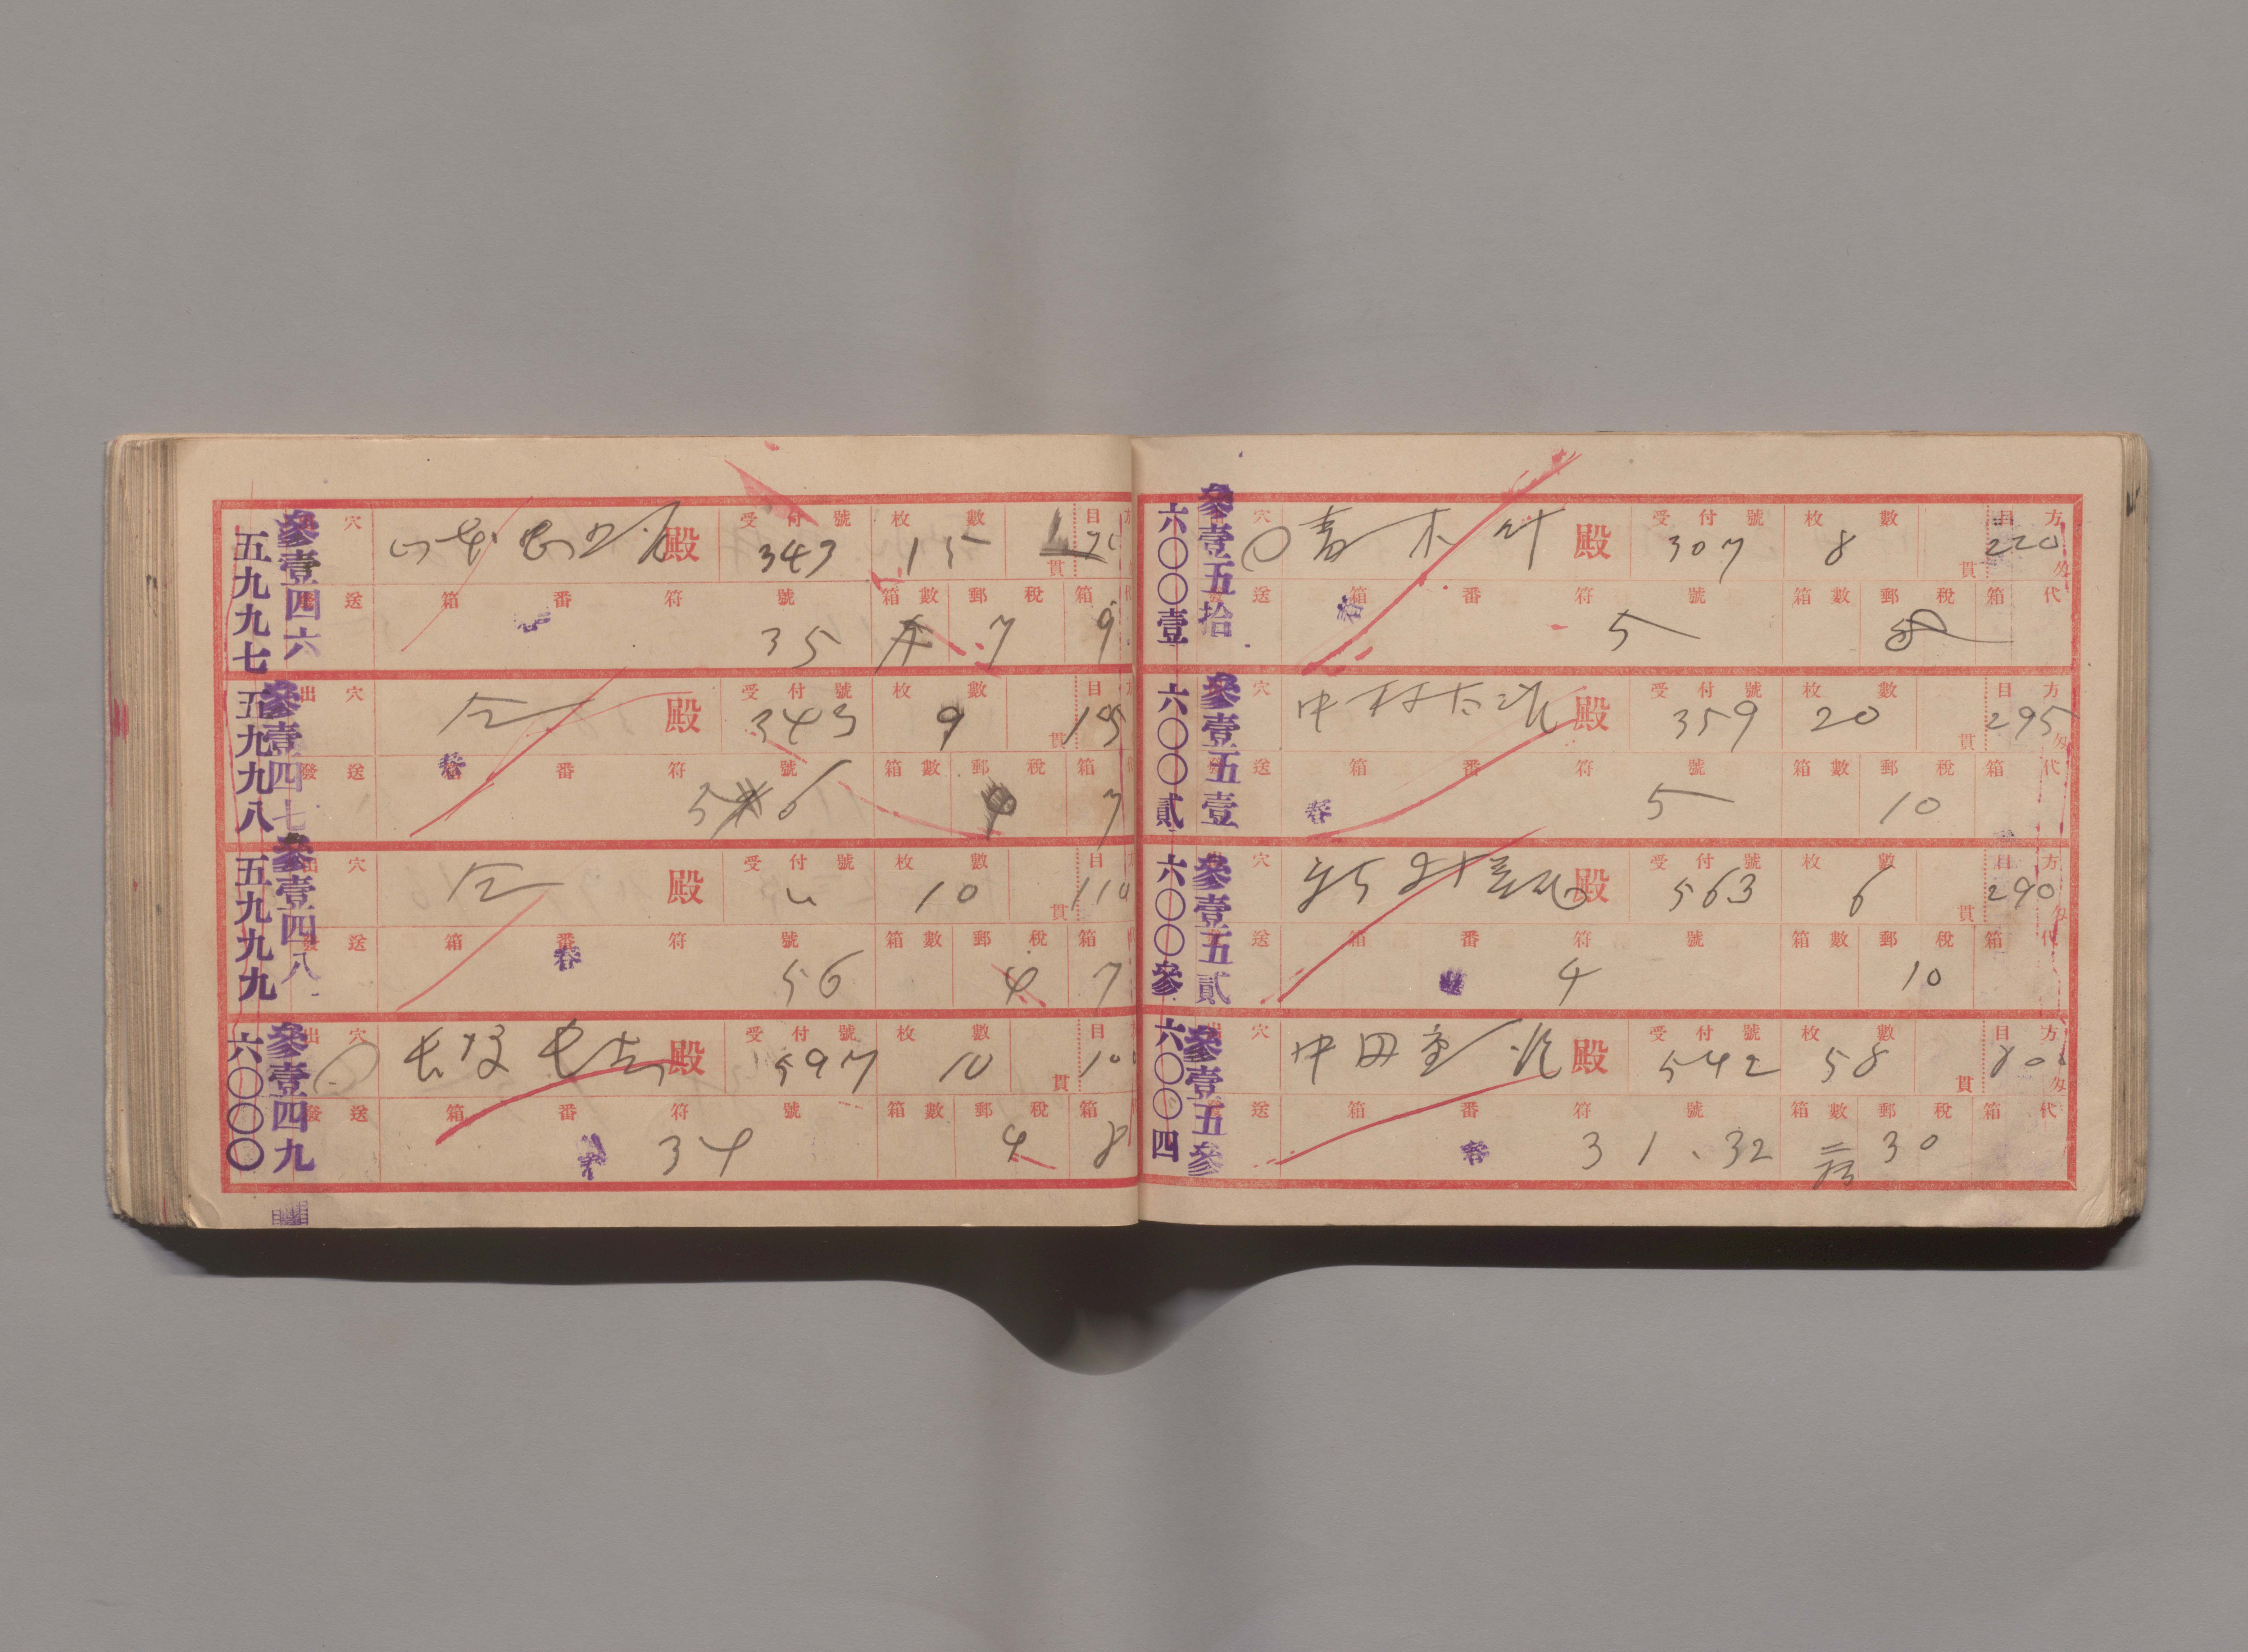 五九九七
參壹四六
穴 殿 受付號 枚數 目
343 15 貫
送 箱番符號 箱數 郵稅 箱
35 7 9
五九九八
參壹四七
出穴 仝 殿 受付號 枚數 目
343 9 貫 195
發送 箱番符號 箱數 郵稅 箱
5 6 7
五九九九
參壹四八
出穴 仝 殿 受付號 枚數 目
10 貫 110
發送 箱番符號 箱數 郵稅 箱
56 4 7
六〇〇〇
參壹四九
出穴 殿 受付號 枚數 目
597 10 貫
發送 箱番符號 箱數 郵稅 箱
34 4 8
六〇〇壹
參壹五拾
穴 青木 殿 受付號 枚數 目方
307 8 貫 220 匁
送 箱番符號 箱數 郵稅 箱代
5 8
六〇〇貳
參壹五壹
穴 中村 殿 受付號 枚數 目方
359 20 貫 295 匁
送 箱番符號 箱數 郵稅 箱代
5 10
六〇〇參
參壹五貳
穴 殿 受付號 枚數 目方
563 6 貫 290 匁
送 箱番符號 箱數 郵稅 箱代
4 10
六〇〇四
參壹五參
穴 中田 殿 受付號 枚數 目方
542 58 貫 800 匁
送 箱番符號 箱數 郵稅 箱代
31、32 30